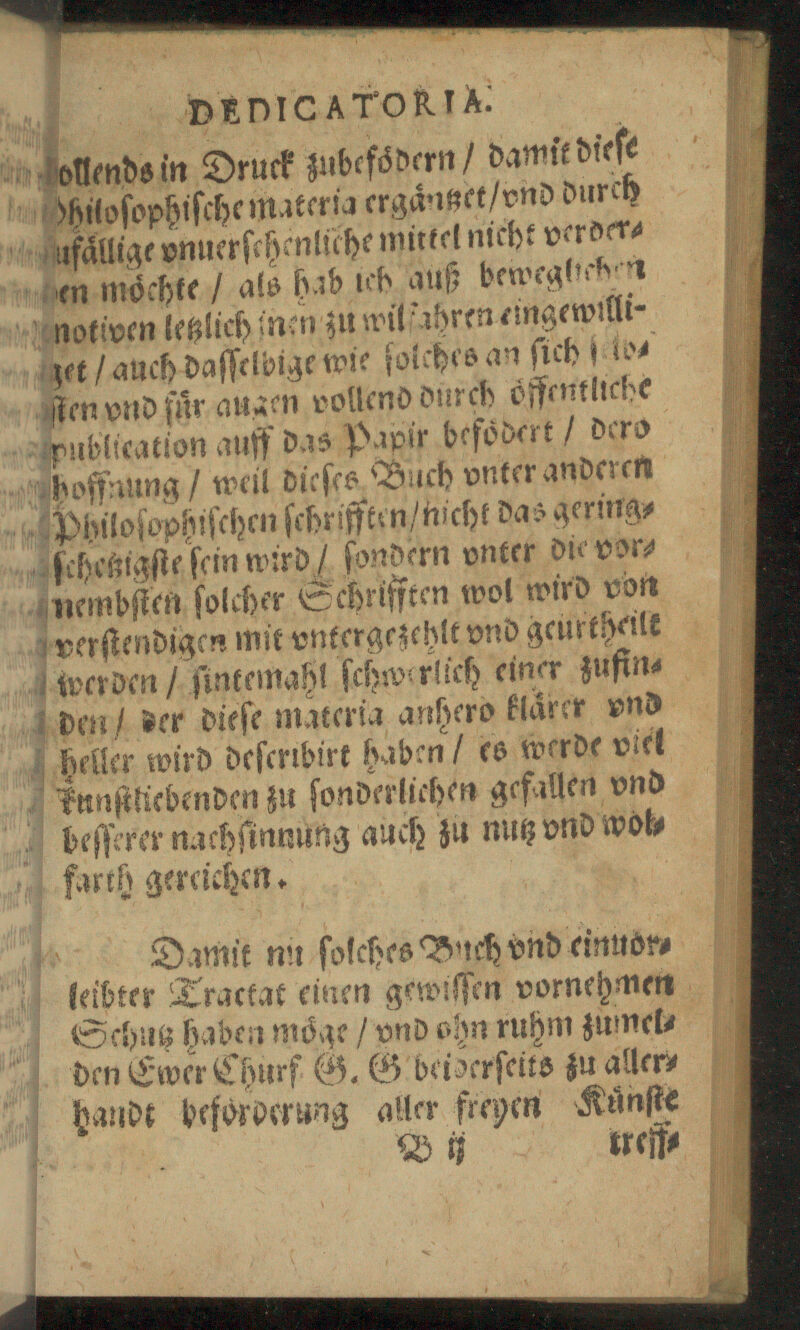 DEDICATORIA.
vollends in Druck zubefödern / damit dieſe
Philoſophiſche materia ergäntzet / vnd durch
zufällige vnuerſehenliche mittel nicht verder⸗
ben möchte / als hab ich auß beweglichen
motiven letzlich inen zu wilfahren eingewilli-
get / auch daſſelbige wie ſolches an ſich ſelb⸗
ſten vnd für augen vollend durch öffentliche
publication auff das Papir befödert / dero
hoffnung / weil dieſes Buch vnter anderen
Philoſophiſchen ſchrifften / nicht das gering⸗
ſchetzigſte ſein wird / ſondern vnter die vor⸗
nembſten ſolcher Schrifften wol wird von
verſtendigen mit vntergezehlt vnd geurtheilt
werden / ſintemahl ſchwerlich einer zufin⸗
den / der dieſe materia anhero klärer vnd
heller wird deſcribirt haben / es werde viel
kunſtliebenden zu ſonderlichen gefallen vnd
beſſerer nachſinnung auch zu nutz vnd wol⸗
farth gereichen.
Damit nu ſolches Buch vnd einuor⸗
leibter Tractat einen gewiſſen vornehmen
Schutz haben möge / vnd ohn ruhm zumel⸗
den Ewer Churf G. G beiderſeits zu aller⸗
handt beförderung aller freyen Künſte
B ij treff⸗